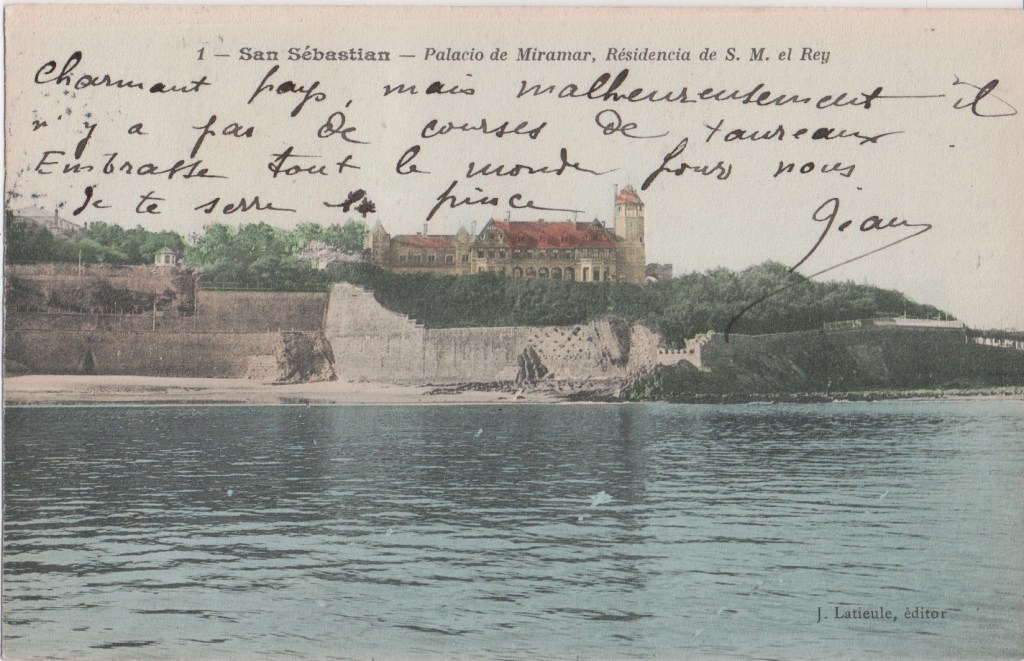 1 — San Sébastian — Palacio de Miramar, Résidencia de S. M. el Rey
Charmant pays, mais malheureusement il
n'y a pas de courses de taureaux
Embrasse tout le monde pour nous
Je te serre la pince
Jean
J. Latieule, éditor